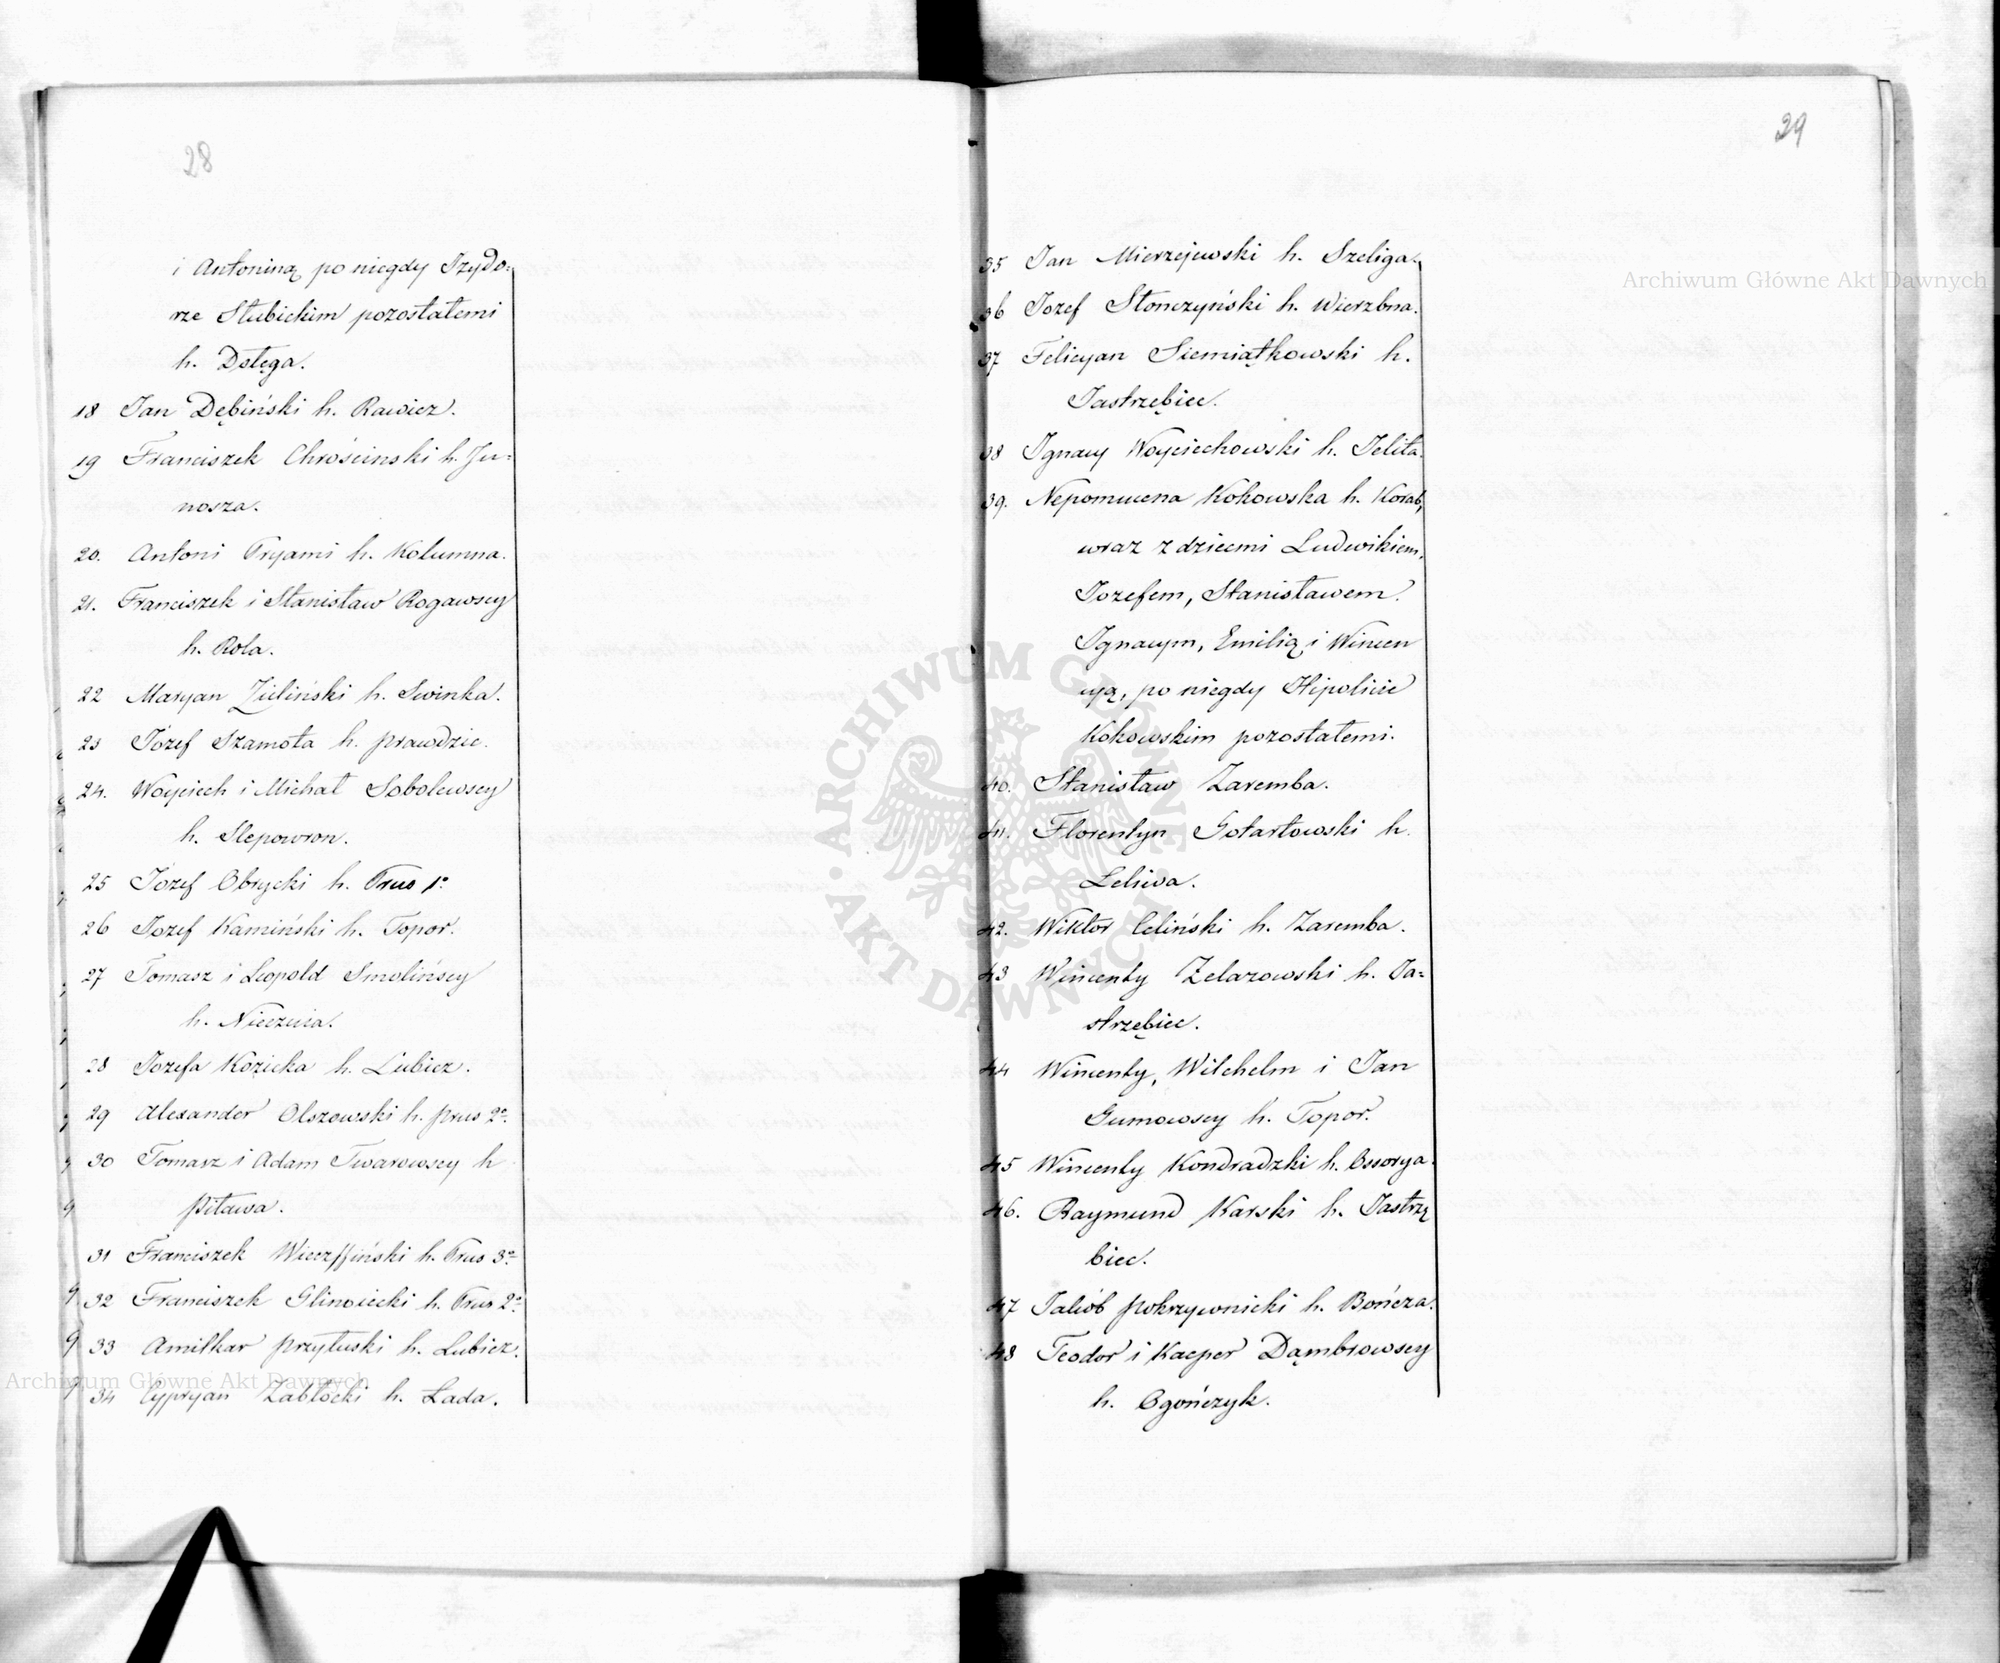 28
i Antoniną po niegdy Izydo-
rze Słubickim pozostałemi
h. Dołęga.
18 Jan Dębiński h. Rawicz.
19 Franciszek Chrościnski h. Ju-
nosza.
20. Antoni Pryami h. Kolumna.
21. Franciszek i Stanisław Rogawscy
h. Rola.
22 Maryan Zieliński h. Swinka.
23 Józef Szamota h. prawdzic.
24. Woyciech i Michał Sobolewscy
h. Slepowron.
25 Józef Obrycki h. Prus 1º
26 Jozef Kamiński h. Topor.
27 Tomasz i Leopold Smolińscy
h. Nieczuia.
28 Jozefa Kozicka h. Lubicz.
29 Alexander Olszowski h. prus 2º
30 Tomasz i Adam Twarowscy h
piława.
31 Franciszek h. Prus 3º
32 Franciszek Gliniecki h. Prus 2º
33 Amilkar przyłuski h. Lubicz.
34 Cypryan Zabłocki h. Łada.
29
35 Jan Mierzejewski h. Szeliga.
36 Jozef Słonczyński h. Wierzbna.
37 Felicyan Siemiątkowski h.
Jastrzębiec.
38 Ignacy Woyciechowski h. Jelita.
39. Nepomucena Kokowska h. Korab,
wraz z dziecmi Ludwikiem,
Jozefem, Stanisławem.
Ignacym, Emilią i Wincen
cyą, po niegdy Hipolicie
Kokowskim pozostałemi.
40. Stanisław Zaremba.
41. Florentyn Gotartowski h.
Leliwa.
42. Wiktor Celiński h. Zaremba.
43 Wincenty Zelazowski h. Ja-
strzębiec.
44 Wincenty, Wilchelm i Jan
Gumowscy h. Topor.
45 Wincenty Kondradzki h. Ossorya.
46. Raymund Karski h. Jastrzę
biec.
47 Jakób pokrzywnicki h. Bończa.
48 Teodor i Kacper Dąmbrowscy
h. Ogończyk.
Archiwum Główne Akt Dawnych
Archiwum Główne Akt Dawnych
ARCHIWUM GŁÓWNE AKT DAWNYCH